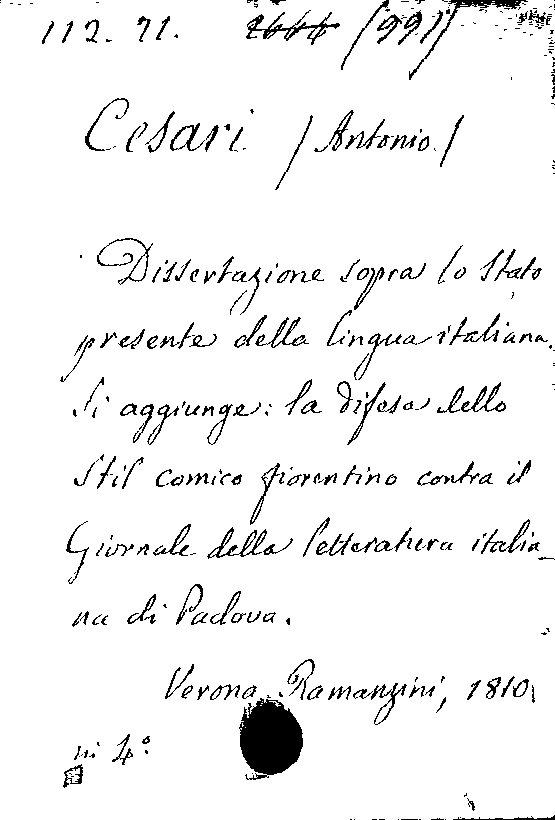 112. 71. 1666 (991)
Cesari (Antonio)
Dissertazione sopra lo Stato
presente della lingua italiana.
Si aggiunge: la difesa dello
Stil comico fiorentino contra il
Giornale della letteratura italia_
na di Padova.
Verona, Ramanzini, 1810
in 4°